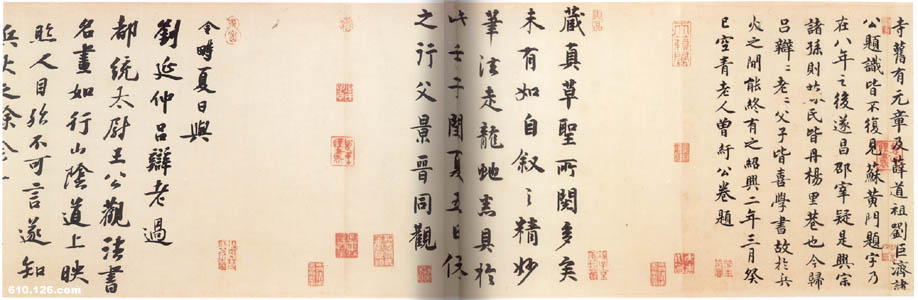 寺舊有元章及薛道祖劉巨濟諸
公題識皆不復見蘇黃門題字乃
在八年之後遂昌邵宰疑是興宗
諸孫則吾民皆丹楊里巷也今歸
呂辯〻老〻父子皆喜學書故於兵
火之間能終有之紹興二年三月癸
巳空青老人曾紆公卷題
藏真草聖所閱多矣
未有如自敘之精妙
筆法走龍蛇意具於
此壬子閏夏五日
之行父景晉同觀
令時夏日與
劉延仲呂辯老過
都統太尉王公觀法書
名畫如行山陰道上映
照人目殆不可言遂知
兵火之餘
610.126.com